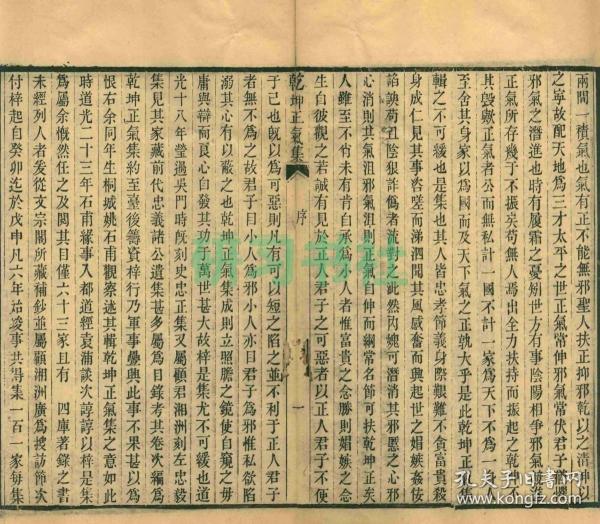 兩間一積氣也氣有正不能無邪聖人扶正抑邪乾以之清坤以
之寧故配天地為三才太平之世正氣常伸邪氣常伏君子
邪氣之潛進也時有履霜之憂矧世方有事陰陽相爭邪氣
正氣所存幾于不振矣苟無人焉出全力扶持而振起之
其毀敵正氣者公而無私計一國不計一家為天下不為一
至舍其身家以為國而及天下氣之正孰大乎是此乾坤正氣
輯之不可緩也是集也其人皆忠孝節義身際艱難不貪富貴殺
身成仁見其事咨嗟而涕泗聞其風感奮而興起世之媢嫉
諂諛苟且陰狠詐僞者流對之泚然內媿可潛消其邪慝之心邪
心消則其氣沮邪氣沮則正氣自伸而綱常名節可扶乾坤正矣
人雖至不肖未有肯自承為小人者惟富貴之念勝則媢嫉之念
生自彼觀之若誠有見於正人君子之可惡者以正人君子不便
于己也旣以為可惡則凡有可以短之陷之並不利于正人君子
者無不為之故君子目小人為邪小人亦曰君子為邪惟私欲陷
溺其心有以蔽之也乾坤正氣集成則立照膽之鏡使自窺之毋
庸與辯而良心自發其功于萬世甚大故梓是集尤不可緩也道
光十八年瑩過吳門時旣刻史忠正集又屬顧君湘洲刻左忠毅
集見其家藏前代忠義諸公遺集甚多屬為目錄考其卷次編為
乾坤正氣集約至臺後籌資梓行乃軍事㬪興此事不果甚以為
恨石余同年生桐城姚石甫觀察述其輯乾坤正氣集之意如此
時道光二十三年石甫緣事入都道經袁浦談次諄諄以梓是集
為屬余慨然任之及閱其目僅六十三家且有 四庫著錄之書
未經列入者爰從文宗閣所藏補鈔並屬顧湘洲廣為搜訪節次
付梓起自癸卯迄於戊申凡六年始竣事共得集一百一家每集
乾坤正氣集 序 一
孔夫子旧书网